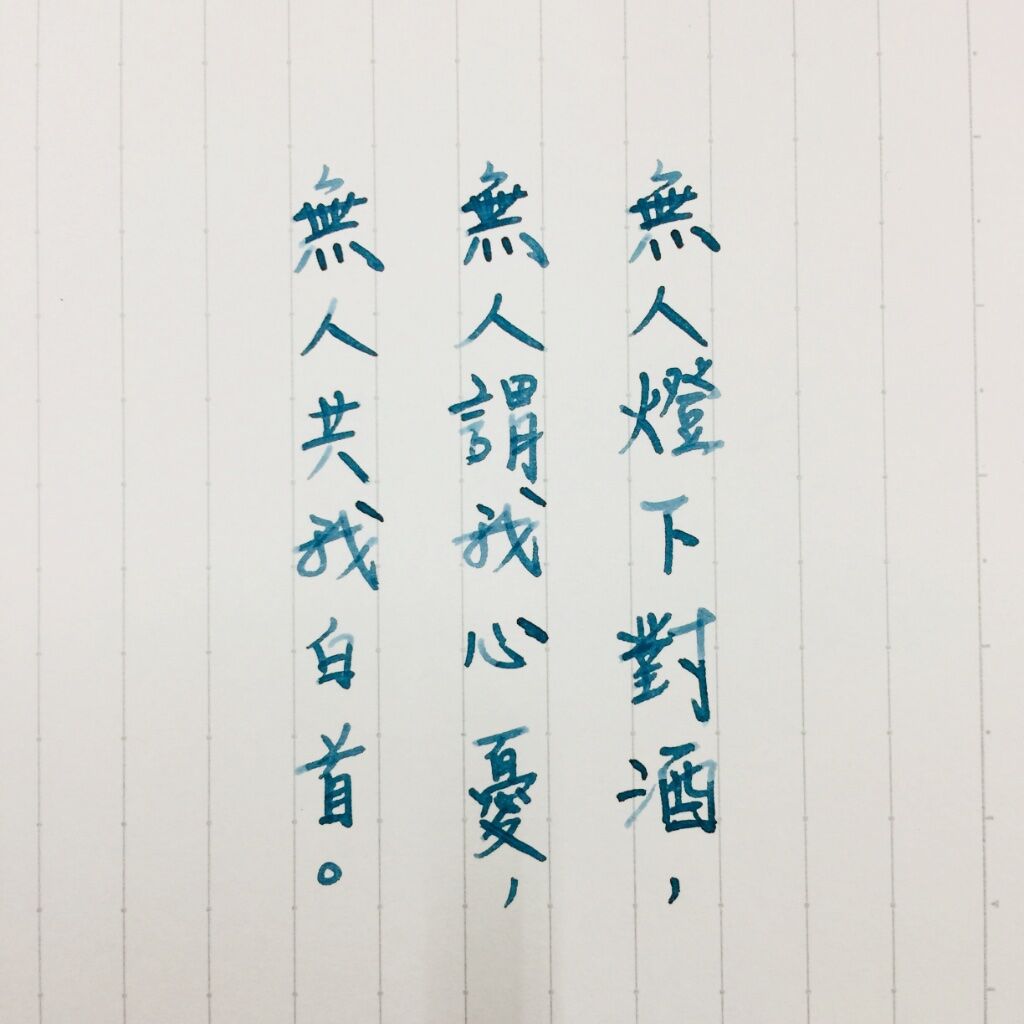 無人燈下對酒，
無人謂我心憂，
無人共我白首。